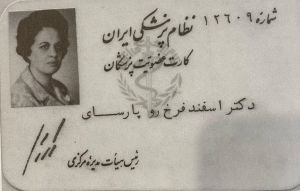 شماره ۱۲۶۰۹ نظام پزشکی ایران
کارت عضویت پزشگان
دکتر اسفند فرخ رو پارسای
رئیس هیأت مدیره مرکزی